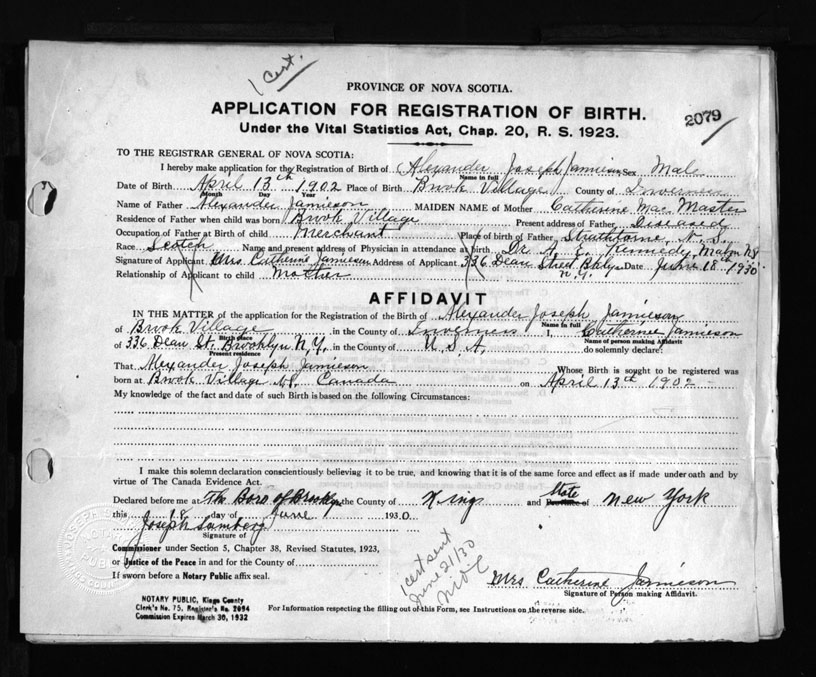 1 Cert.
PROVINCE OF NOVA SCOTIA.
APPLICATION FOR REGISTRATION OF BIRTH.
2079
Under the Vital Statistics Act, Chap. 20, R. S. 1923.
TO THE REGISTRAR GENERAL OF NOVA SCOTIA:
I hereby make application for the Registration of Birth of Alexander Joseph Jamieson Sex Male
Name in full
Date of Birth April 13th 1902 Place of Birth Brook Village County of Inverness
Month Day Year
Name of Father Alexander Jamieson MAIDEN NAME of Mother Catherine Mac Master
Residence of Father when child was born Brook Village Present address of Father Diseased
Occupation of Father at Birth of child Merchant Place of birth of Father Strathlorne, N. S.
Race Scotch Name and present address of Physician in attendance at birth Dr. A. E. Kennedy, Mabou N.S.
Signature of Applicant Mrs Catherine Jamieson Address of Applicant 336 Dean Street Bklyn N.Y. Date June 18th 1930
Relationship of Applicant to child Mother
AFFIDAVIT
IN THE MATTER of the application for the Registration of the Birth of Alexander Joseph Jamieson
Name in full
of Brook Village in the County of Inverness I, Catherine Jamieson
Birth place Name of person making Affidavit
of 336 Dean St. Brooklyn N.Y. in the County of U.S.A. do solemnly declare:
Present residence
That Alexander Joseph Jamieson Whose Birth is sought to be registered was
born at Brook Village N.S. Canada on April 13th 1902
My knowledge of the fact and date of such Birth is based on the following Circumstances:
I make this solemn declaration conscientiously believing it to be true, and knowing that it is of the same force and effect as if made under oath and by
virtue of The Canada Evidence Act.
Declared before me at The Boro of Brooklyn the County of Kings and State of New York
this 18 day of June 1930.
Joseph
Signature of
Commissioner under Section 5, Chapter 38, Revised Statutes, 1923,
or Justice of the Peace in and for the County of
If sworn before a Notary Public affix seal.
1 cert sent
June 21/30
Mrs Catherine Jamieson
Signature of Person making Affidavit.
NOTARY PUBLIC, Kings County
Clerk's No. 75, Register's No. 2094
Commission Expires March 30, 1932
For Information respecting the filling out of this Form, see Instructions on the reverse side.